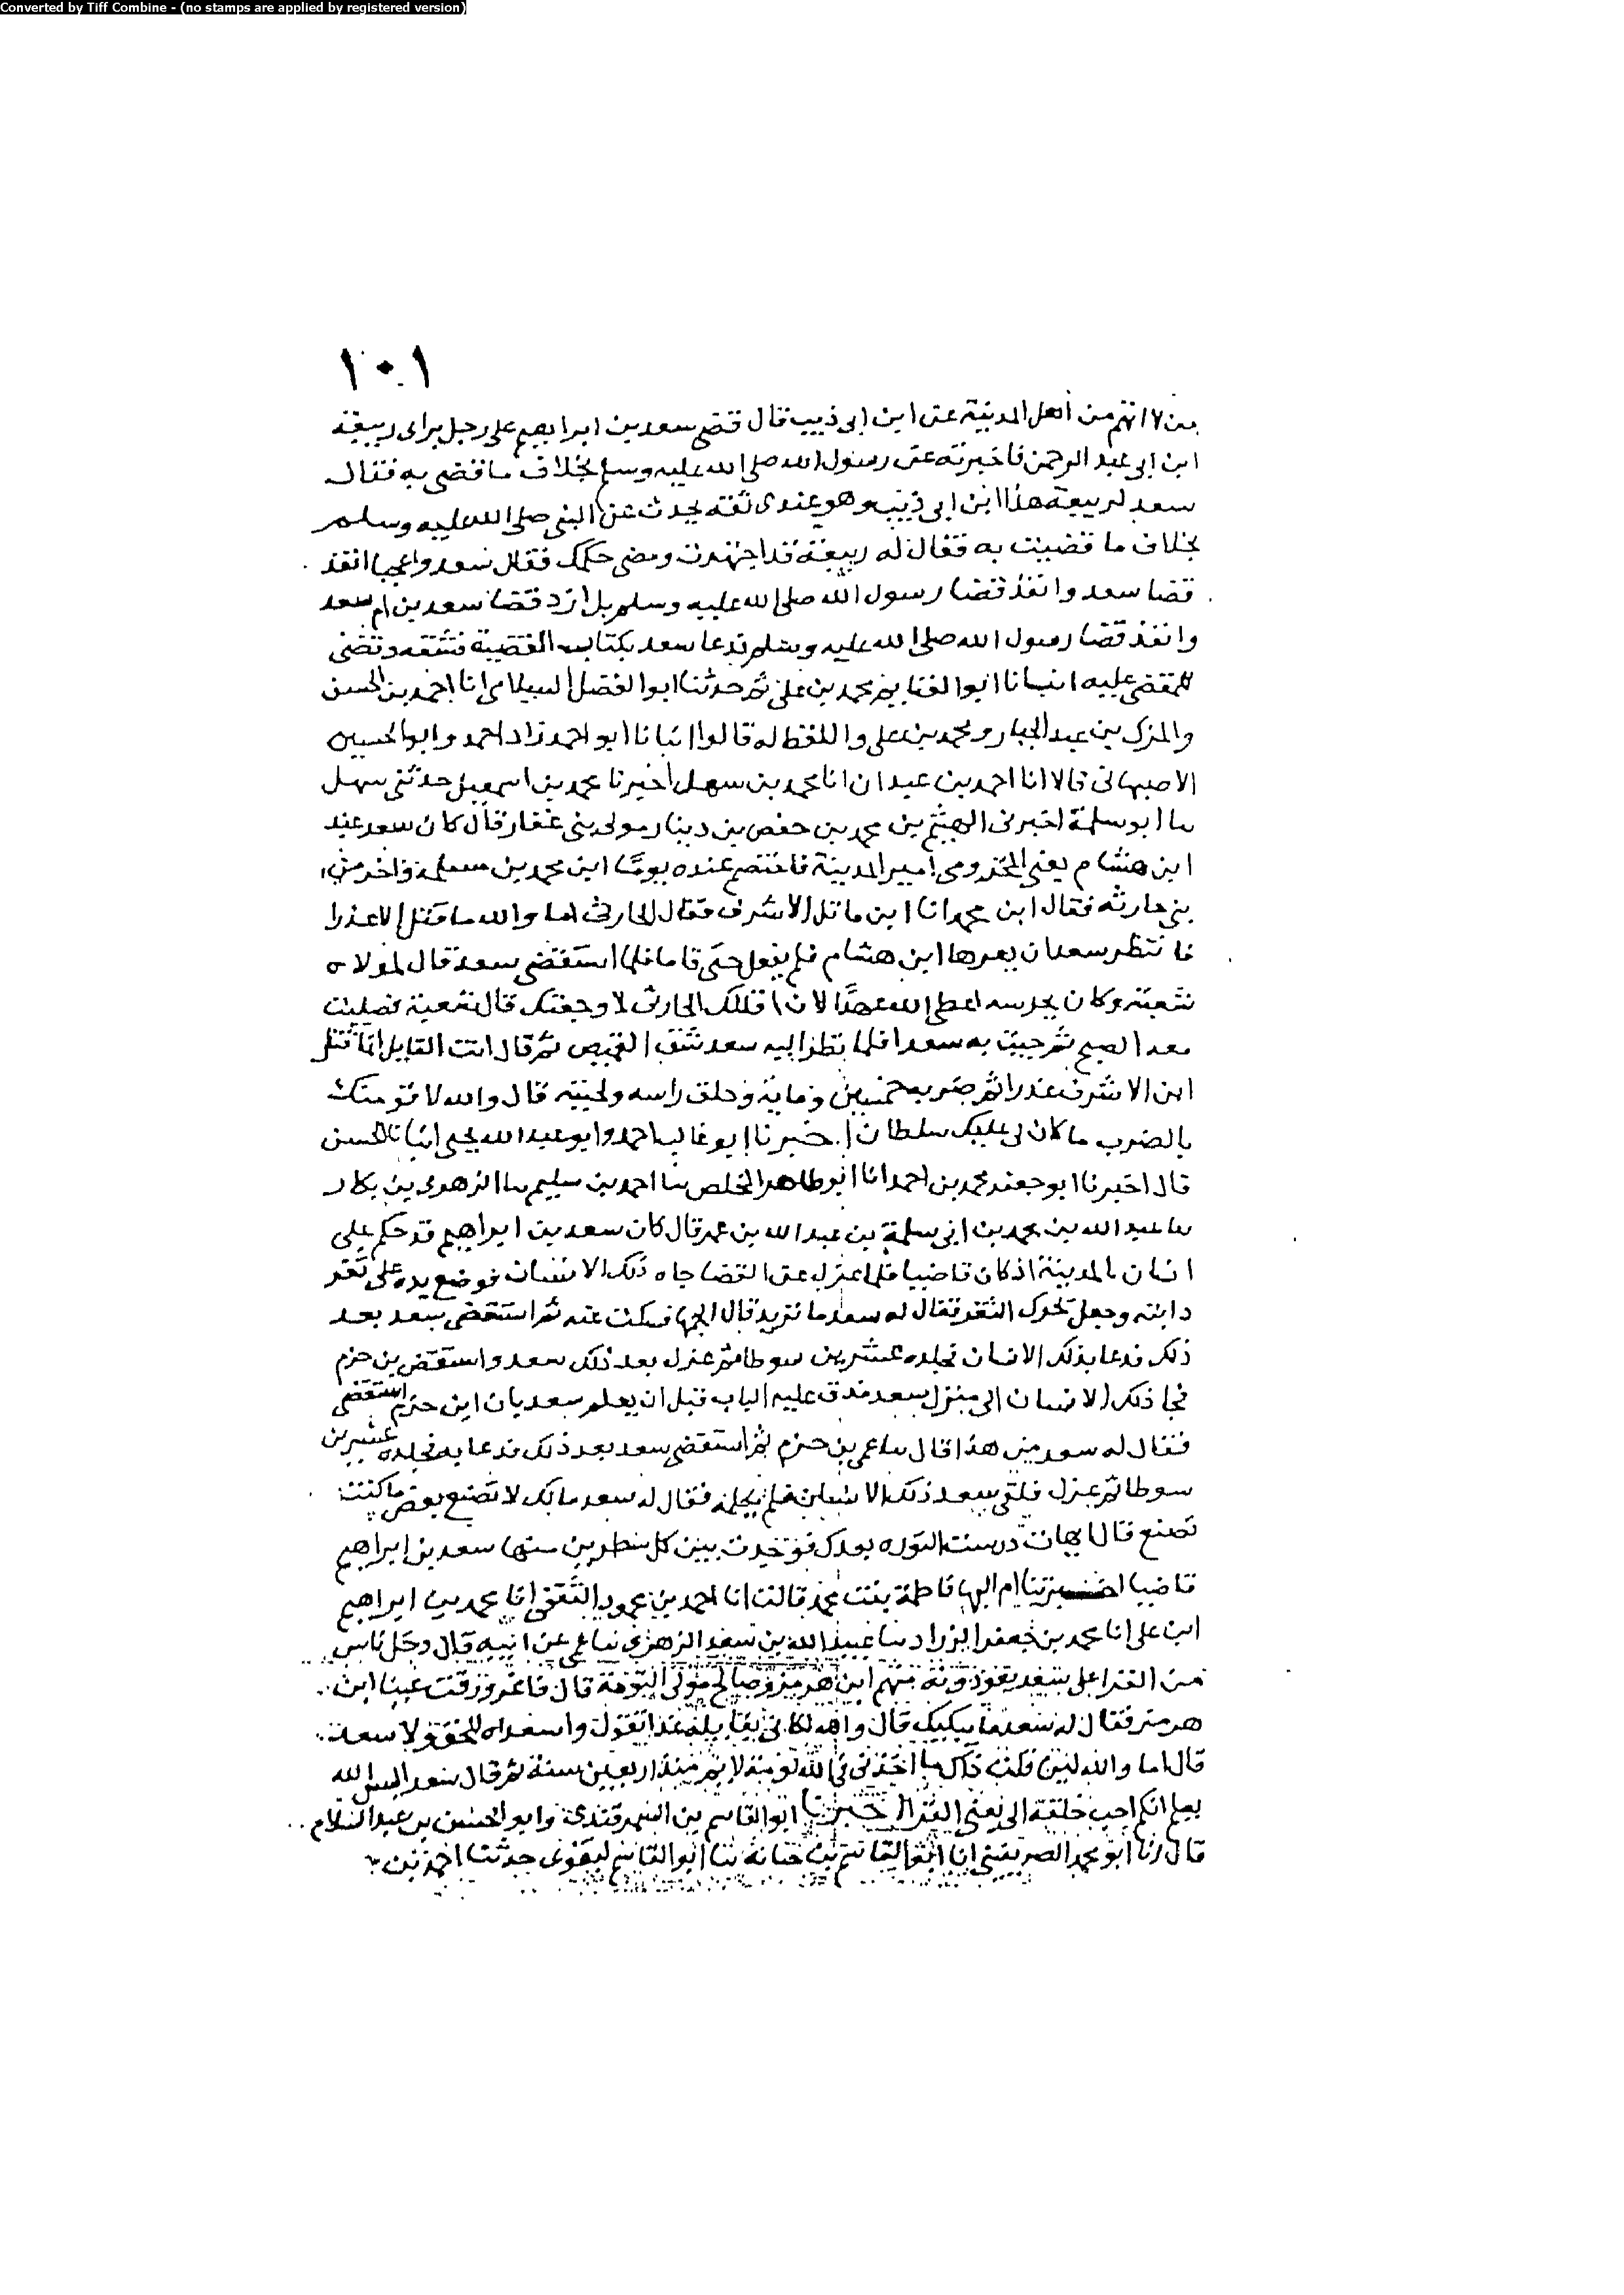 Converted by Tiff Combine - (no stamps are applied by registered version)
١٠١
من لا اتهم من أهل المدينة عن ابن ابى ذيب قال قضى سعد بن ابراهيم على رجل براى ربيعة
ابن ابى عبد الرحمن فاخبرته عن رسول الله صلى الله عليه وسلم بخلاف ما قضى به فقال
سعد لربيعة هذا ابن ابى ذيب وهو عندى ثقة يحدث عن النبى صلى الله عليه وسلم
بخلاف ما قضيت به فقال له ربيعة قد اجتهدت ومضى حكمك فقال سعد واعجبا انفذ
قضا سعد وانفذ قضا رسول الله صلى الله عليه وسلم بل ارد قضا سعد بن ام سعد
وانفذ قضا رسول الله صلى الله عليه وسلم فدعا سعد بكتاب القضية فشقه وقضى
للمقضى عليه انبانا ابوا الغنايم محمد بن على ثم حدثنا ابوا الفضل السلامى انا احمد بن الحسن
والمبرك بن عبد الجبار ومحمد بن على واللفظ له قالوا انبانا ابو احمد زاد احمد وابو الحسين
الاصبهانى قالا انا احمد بن عبدان انا محمد بن سهل اخبرنا محمد بن اسمعيل حدثنى سهل
سا ابو سلمة اخبرنى الهيثم بن محمد بن حفص بن دينار مولى بنى غفار قال كان سعد عند
ابن هشام يعنى المخزومى امير المدينة فاختصم عنده يومًا ابن محمد بن مسلمة واخر من
بنى حارثه فقال ابن محمد انا ابن قاتل الاشرف فقال الحارثى اما والله ما قتل الا غدرا
فانتظر سعد ان يغيرها ابن هشام فلم يفعل حتى قاما فلما استقضى سعد قال لمولاه
شعبة وكان يحرسه اعطى الله عهدًا لان افلتك الحارثى لاوجعتك قال شعبة فصليت
معه الصبح ثم جيت به سعدا فلما نظر اليه سعد شق القميص ثم قال انت القايل انما قتل
ابن الاشرف غدرا ثم ضربه خمسين ومايه وحلق راسه ولحيته قال والله لاقومنك
بالضرب ما كان لى عليك سلطان اخبرنا ابو غالب احمد وابو عبد الله يحيى انبانا الحسن
قال اخبرنا ابو جعفر محمد بن احمد انا ابو طاهر المخلص سا احمد بن سليم سا الزهرى بن بكار
سا عبد الله بن محمد بن ابى سلمة بن عبد الله بن عمر قال كان سعد بن ابراهيم قد حكم على
انسان بالمدينة اذ كان قاضيا فلما عزل عن القضا جاه ذلك الانسان فوضع يده على ثفر
دابته وجعل يحرك الثفر فقال له سعد ما تريد قال الجمها فسكت عنه ثم استقضى سعد بعد
ذلك فدعا بذلك الانسان فجلده عشرين سوطا ثم عزل بعد ذلك سعد واستقضى بن حزم
فجا ذلك الانسان الى منزل سعد فدق عليه الباب قبل ان يعلم سعد بان ابن حزم استقضى
فقال له سعد من هذا قال بن حزم ثم استقضى سعد بعد ذلك فدعا به فجلده عشرين
سوطا ثم عزل فلقى سعد ذلك الانسان فلم يكلمه فقال له سعد مالك لا تصنع بعض ما كنت
تصنع قال هيهات درست التوره بعدك فوجدت بين كل سطرين منها سعد بن ابراهيم
قاضيا اخبرتنا ام البها فاطمة بنت محمد قالت انا احمد بن محمود الثقفى انا محمد بن ابراهيم
ابن على انا محمد بن جعفر الزراد سا عبيد الله بن سعد الزهرى سا عمى عن ابيه قال دخل ناس
من القرا على سعد يعودونه منهم ابن هرمز وصالح مولى التومة قال فاغرورقت عينا ابن
هرمز فقال له سعد ما يبكيك قال والله لكانى بقايلة غدا تقول واسعداه للحق ولا سعد
قال اما والله لين قلت ذاك ما اخذنى فى الله لومة لايم منذ اربعين سنة ثم قال سعد اليس الله
يعلم انكم احب خلقه الى يعنى القرا اخبرنا ابو القاسم بن السمرقندى وابو الحسن بن عبد السلام
قالا انا ابو محمد الصريفينى انا ابو القاسم بن حبابة نا ابو القاسم البغوى حدثنا احمد بن